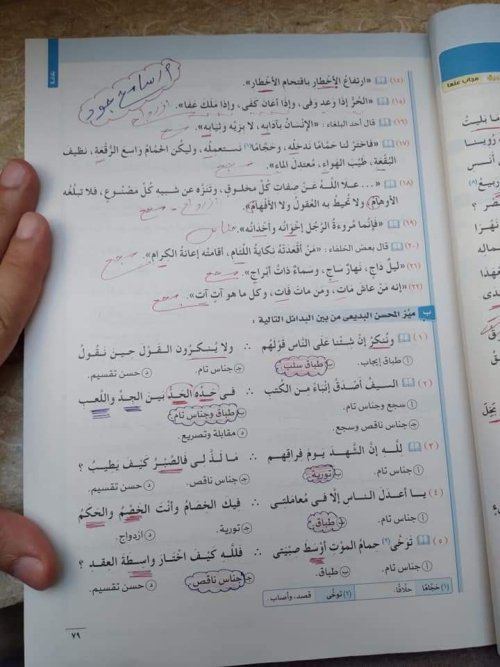 أ/ سامح جود
(١٤) «ارتفاع الأخطار باقتحام الأخطار».
(١٥) «الحُرُّ إذا وَعد وفى، وإذا أعان كفى، وإذا ملك عفا». ازدواج
(١٦) قال أحد البلغاء: «الإنسان بآدابه، لا بزيّه وثيابه». سجع
(١٧) «فاختر لنا حمَّامًا ندخله، وحجَّامًا(١) نستعمله، وليكن الحمَّام واسع الرقعة، نظيف
البقعة، طيب الهواء، معتدل الماء». سجع
(١٨) «... علا اللهُ عن صفات كل مخلوق، وتنزه عن شبيه كل مصنوع، فلا تبلغه
الأوهام ولا تحيط به العقول ولا الأفهام». ازدواج - سجع
(١٩) «فإنما مروءة الرجل إخوانه وأخدانه». جناس
(٢٠) قال بعض الخلفاء: «مَن أقعدته نكاية اللئام، أقامته إعانة الكرام». سجع
(٢١) «ليل داج، نهار ساج، وسماء ذات أبراج». سجع
(٢٢) «إنه مَن عاش مات، ومَن مات فات، وكل ما هو آتٍ آت». سجع
ب ميّز المحسن البديعى من بين البدائل التالية :
(١) ونُنكر إن شئنا على الناس قولهم ∴ ولا ينكرون القول حين نقول
أ طباق إيجاب. ب طباق سلب. ج جناس تام. د حسن تقسيم.
(٢) السيف أصدق إنباءً من الكتب ∴ فى حده الحد بين الجد واللعب
أ سجع وجناس تام. ب طباق وجناس تام.
ج جناس ناقص وسجع. د مقابلة وتصريع.
(٣) لله إن الشهد يوم فراقهم ∴ ما لذ لى فالصبر كيف يطيب ؟
أ جناس تام. ب تورية. ج جناس ناقص. د حسن تقسيم.
(٤) يا أعدل الناس إلا فى معاملتى ∴ فيك الخصام وأنت الخصم والحكم
أ جناس تام. ب طباق. ج تورية. د ازدواج.
(٥) توخى(٢) حمام الموت أوسط صبيتى ∴ فلله كيف اختار واسطة العقد ؟
أ جناس تام. ب طباق. ج جناس ناقص. د حسن تقسيم.
(١) حجّامًا حلاقًا. (٢) توخى قصد، وأصاب.
٧٩